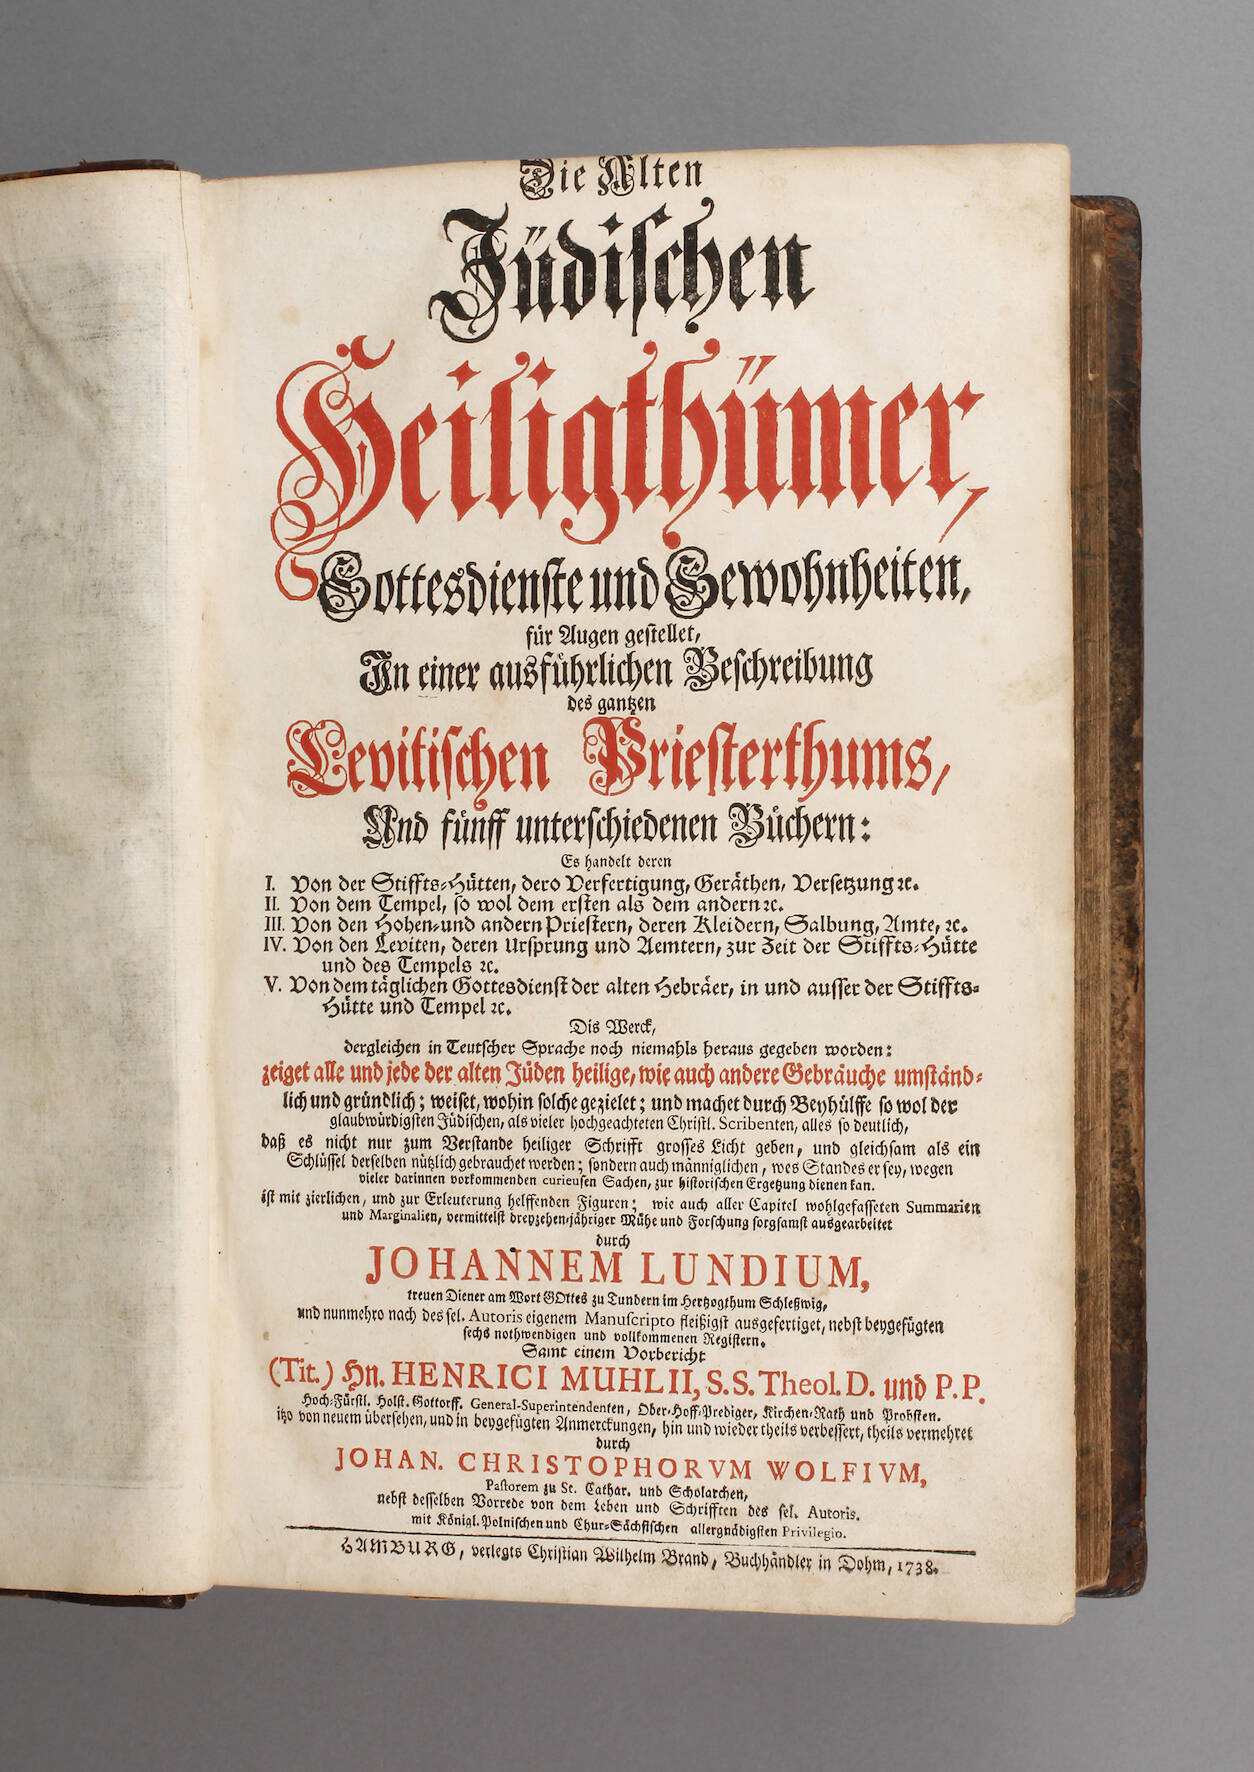 Die Alten
Jüdischen
Heiligthümer,
Gottesdienste und Gewohnheiten,
für Augen gestellet,
In einer ausführlichen Beschreibung
des gantzen
Levitischen Priesterthums,
Und fünff unterschiedenen Büchern:
Es handelt deren
I. Von der Stiffts-Hütten, dero Verfertigung, Geräthen, Versetzung ꝛc.
II. Von dem Tempel, so wol dem ersten als dem andern ꝛc.
III. Von den Hohen- und andern Priestern, deren Kleidern, Salbung, Amte, ꝛc.
IV. Von den Leviten, deren Ursprung und Aemtern, zur Zeit der Stiffts-Hütte
und des Tempels ꝛc.
V. Von dem täglichen Gottesdienst der alten Hebräer, in und ausser der Stiffts-
Hütte und Tempel ꝛc.
Dis Werck,
dergleichen in Teutscher Sprache noch niemahls heraus gegeben worden:
zeiget alle und jede der alten Jüden heilige, wie auch andere Gebräuche umständ-
lich und gründlich; weiset, wohin solche gezielet; und machet durch Beyhülffe so wol der
glaubwürdigsten Jüdischen, als vieler hochgeachteten Christl. Scribenten, alles so deutlich,
daß es nicht nur zum Verstande heiliger Schrifft grosses Licht geben, und gleichsam als ein
Schlüssel derselben nützlich gebrauchet werden; sondern auch männiglichen, wes Standes er sey, wegen
vieler darinnen vorkommenden curieusen Sachen, zur historischen Ergetzung dienen kan.
ist mit zierlichen, und zur Erleuterung helffenden Figuren; wie auch aller Capitel wohlgefasseten Summarien
und Marginalien, vermittelst dreyzehen-jähriger Mühe und Forschung sorgsamst ausgearbeitet
durch
JOHANNEM LUNDIUM,
treuen Diener am Wort GOttes zu Tundern im Hertzogthum Schleßwig,
und nunmehro nach des sel. Autoris eigenem Manuscripto fleißigst ausgefertiget, nebst beygefügten
sechs nothwendigen und vollkommenen Registern.
Samt einem Vorbericht
(Tit.) Hn. HENRICI MUHLII, S.S. Theol. D. und P.P.
Hoch-Fürstl. Holst. Gottorff. General-Superintendenten, Ober-Hoff-Prediger, Kirchen-Rath und Probsten.
itzo von neuem übersehen, und in beygefügten Anmerckungen, hin und wieder theils verbessert, theils vermehret
durch
JOHAN. CHRISTOPHORVM WOLFIVM,
Pastorem zu St. Cathar. und Scholarchen,
nebst desselben Vorrede von dem Leben und Schrifften des sel. Autoris.
mit Königl. Polnischen und Chur-Sächsischen allergnädigsten Privilegio.
HAMBURG, verlegts Christian Wilhelm Brand, Buchhändler in Dohm, 1738.